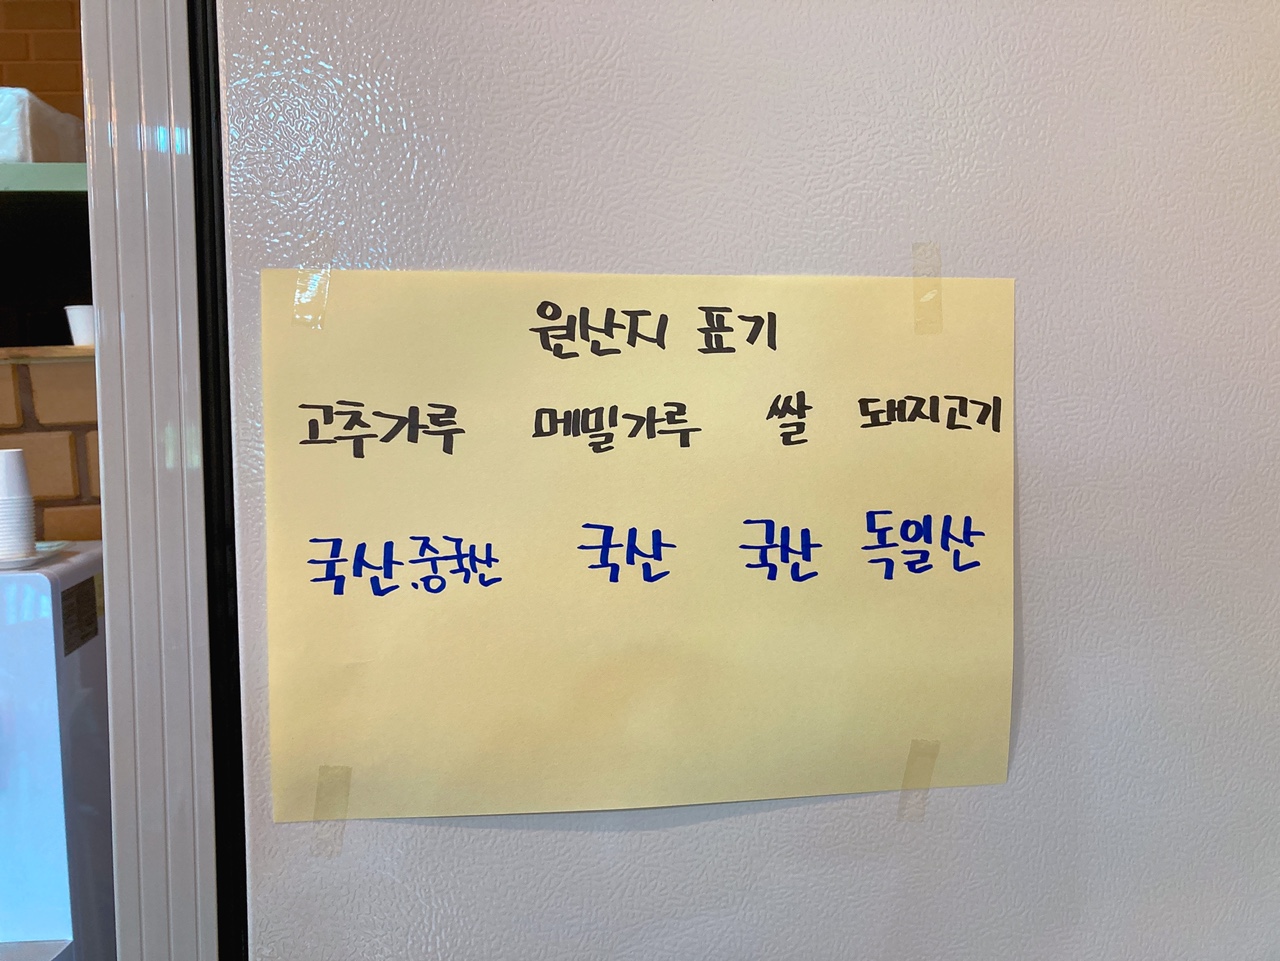 원산지 표기
고추가루 메밀가루 쌀 돼지고기
국산.중국산 국산 국산 독일산